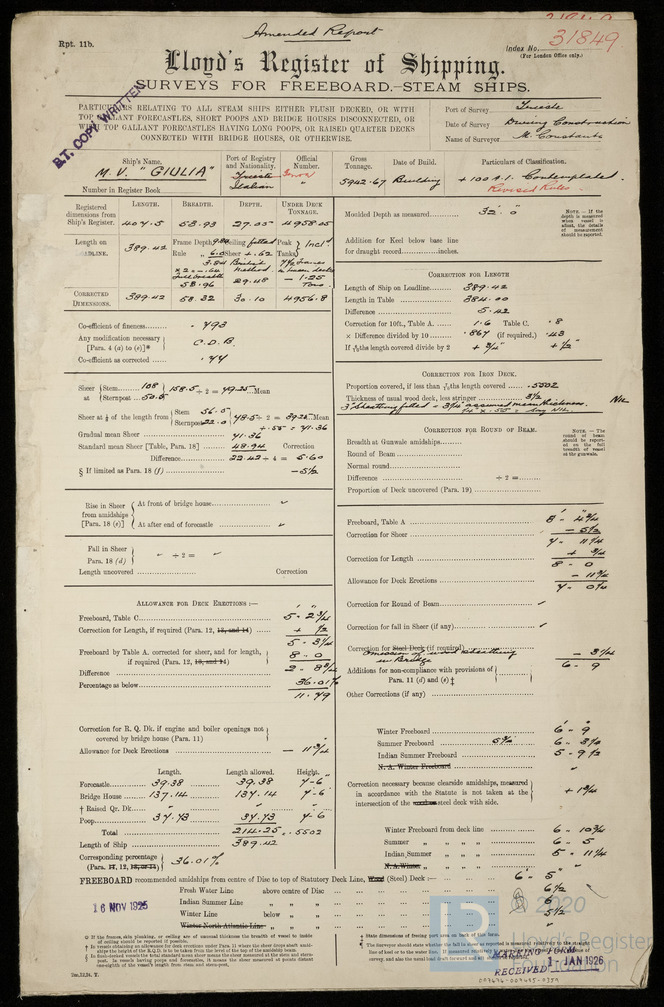 Amended Report
Rpt. 11b.
Index No. 31849
(For London Office only.)
Lloyd's Register of Shipping.
SURVEYS FOR FREEBOARD.—STEAM SHIPS.
B.T. COPY WRITTEN
PARTICULARS RELATING TO ALL STEAM SHIPS EITHER FLUSH DECKED, OR WITH
TOP GALLANT FORECASTLES, SHORT POOPS AND BRIDGE HOUSES DISCONNECTED, OR
WITH TOP GALLANT FORECASTLES HAVING LONG POOPS, OR RAISED QUARTER DECKS
CONNECTED WITH BRIDGE HOUSES, OR OTHERWISE.
Port of Survey Trieste
Date of Survey During Construction
Name of Surveyor M. Constante
Ship's Name. Port of Registry and Nationality. Official Number. Gross Tonnage. Date of Build. Particulars of Classification.
M.V. "GIULIA" Trieste Italian 5942.67 Building +100 A.1. Contemplated.
Number in Register Book Revised Rules.
LENGTH. BREADTH. DEPTH. UNDER DECK TONNAGE.
Registered dimensions from Ship's Register. 407.5 58.93 27.05 4958.05
Length on LOADLINE. 389.42 Frame Depth Ceiling fitted Peak Tanks Incl.
Rule Sheer + .62
CORRECTED DIMENSIONS. 389.42 58.32 30.10 4956.8
Co-efficient of fineness .793
Any modification necessary [Para. 4 (a to e)]* C.D.B.
Co-efficient as corrected .77
Sheer at Stem 108 158.5 ÷ 2 = 79.25 Mean
Sternpost 50.5
Sheer at 1/8 of the length from Stem 56.5 78.5 ÷ 2 = 39.25 Mean
Sternpost 22.0 ÷ .55 = 71.36
Gradual mean Sheer 71.36
Standard mean Sheer [Table, Para. 18] 48.94 Correction
Difference 22.42 ÷ 4 = 5.60
§ If limited as Para. 18 (f) – 5½
Rise in Sheer from amidships [Para. 18 (e)] At front of bridge house
At after end of forecastle
Fall in Sheer Para. 18 (d) ÷ 2 =
Length uncovered Correction
ALLOWANCE FOR DECK ERECTIONS :—
Freeboard, Table C 5 - 2¾
Correction for Length, if required (Para. 12, 13, and 14) + ½
5 - 3¼
Freeboard by Table A. corrected for sheer, and for length, if required (Para. 12, 13, and 14) 8 - 0
Difference 2 - 8¾
Percentage as below 36.01%
11.79
Correction for R. Q. Dk. if engine and boiler openings not covered by bridge house (Para. 11)
Allowance for Deck Erections – 11¾
Length. Length allowed. Height.
Forecastle 39.38 39.38 7-6
Bridge House 137.14 137.14 7-6
† Raised Qr. Dk.
Poop 37.73 37.73 7-6
Total 214.25 .5502
Length of Ship 389.42
Corresponding percentage (Para. 11, 12, 13, or 14) 36.01%
Moulded Depth as measured 32' 0"
NOTE.—If the depth is measured when vessel is afloat, the details of measurement should be reported.
Addition for Keel below base line for draught record inches.
CORRECTION FOR LENGTH
Length of Ship on Loadline 389.42
Length in Table 384.00
Difference 5.42
Correction for 10ft., Table A. 1.6 Table C. .8
× Difference divided by 10 .867 (if required.) .43
If 6/10ths length covered divide by 2 + ¾ + ½
CORRECTION FOR IRON DECK.
Proportion covered, if less than 7/10ths length covered .5502
Thickness of usual wood deck, less stringer 3½ Nil
CORRECTION FOR ROUND OF BEAM.
NOTE.—The round of beam should be reported on the full breadth of vessel at the gunwale.
Breadth at Gunwale amidships
Round of Beam
Normal round
Difference ÷ 2 =
Proportion of Deck uncovered (Para. 19)
Freeboard, Table A 8 - 4¾
Correction for Sheer – 5½
7 - 11¼
Correction for Length + ¾
8 - 0
Allowance for Deck Erections – 11¾
7 - 0¼
Correction for Round of Beam
Correction for fall in Sheer (if any)
Correction for Steel Deck (if required) Omission of wood sheathing in Bridge – 3¼
6 - 9
Additions for non-compliance with provisions of Para. 11 (d) and (e) ‡
Other Corrections (if any)
Winter Freeboard 6' - 9"
Summer Freeboard 5¾ 6 - 3¼
Indian Summer Freeboard 5 - 9½
N. A. Winter Freeboard
Correction necessary because clearside amidships, measured in accordance with the Statute is not taken at the intersection of the wooden steel deck with side. + 1¾
Winter Freeboard from deck line 6 - 10¾
Summer " " " " 6 - 5
Indian Summer " " " " 5 - 11¼
N. A. Winter
FREEBOARD recommended amidships from centre of Disc to top of Statutory Deck Line, Wood (Steel) Deck :— 6' - 5"
Fresh Water Line above centre of Disc 6½
Indian Summer Line " "
Winter Line below " 5½
Winter North Atlantic Line
16 NOV 1925
© 2020
Lloyd's Register
Foundation
MARKING FORM
RECEIVED 1-JAN 1926